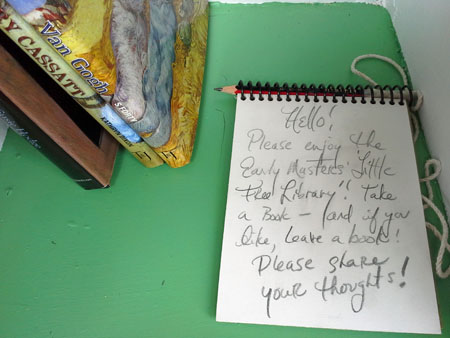 Van Gogh
Y CASSATT
Hello!
Please enjoy the
Early Masters' Little
Free Library". Take
a Book – (and if you
like, leave a book!
Please share
your thoughts!